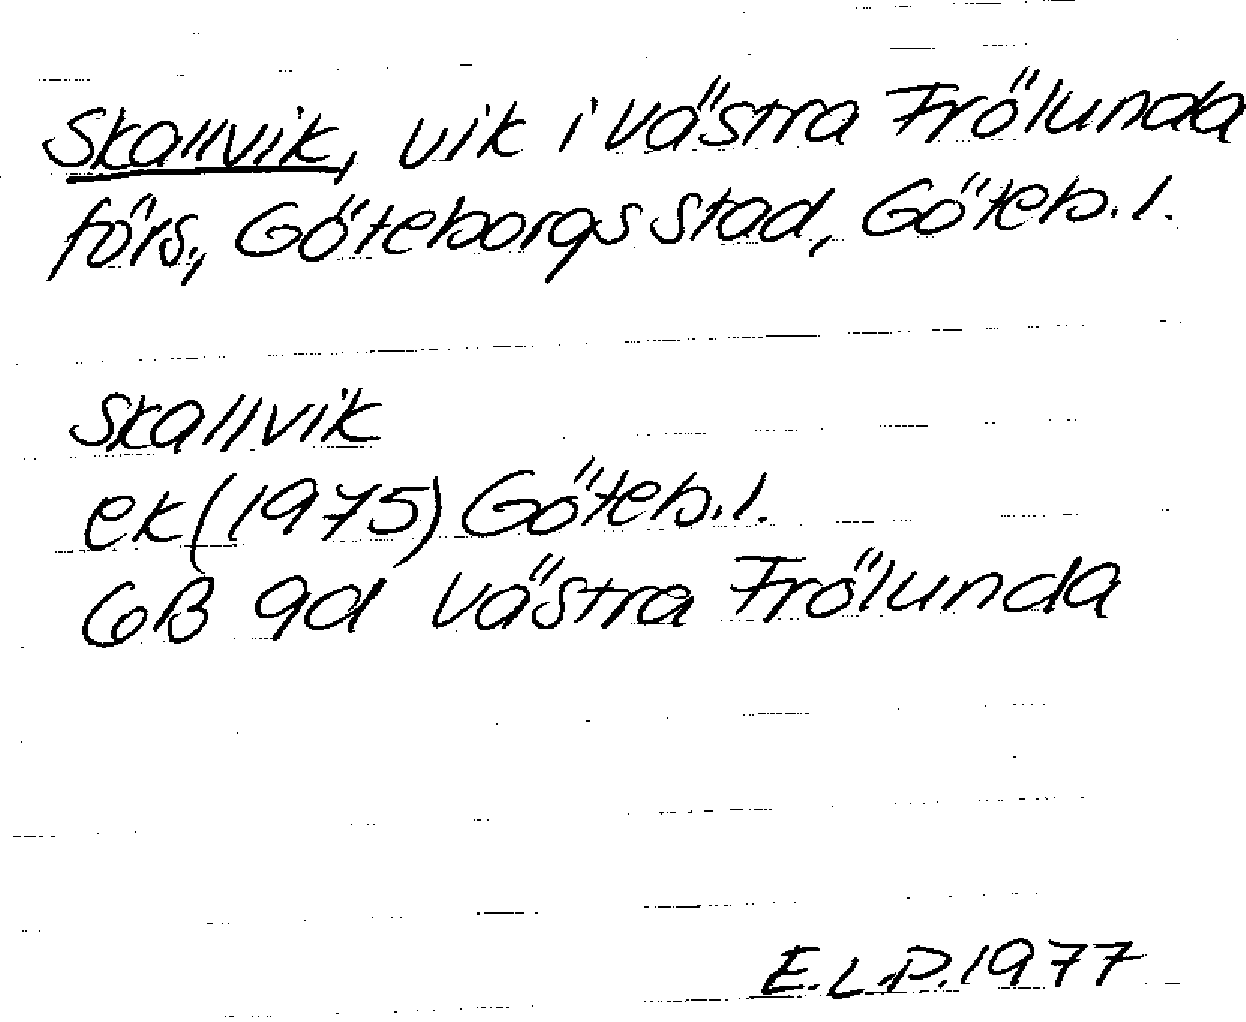 Skallvik, vik i Västra Frölunda
förs., Göteborgs stad, Göteb.l.
Skallvik
ek (1975) Göteb.l.
6B 9d Västra Frölunda
E.L.P. 1977